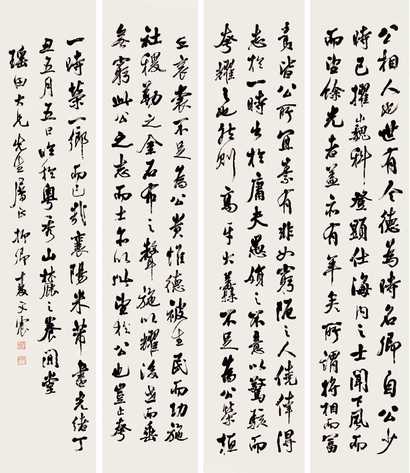 公相人也世有令德為時名卿自公少
時已擢巍科登顯仕海內之士聞下風而
望餘光者蓋亦有年矣所謂將相而富
貴皆公所宜素有非如窮阨之人僥倖得
志於一時出於庸夫愚婦之不意以驚駭而
夸耀之也然則高牙大纛不足為公榮桓
圭袞裳不足為公貴惟德被生民而功施
社稷勒之金石布之聲施以耀後世而垂
無窮此公之志而士亦以此望於公也豈止夸
一時榮一鄉而已哉襄陽米芾書光緒丁
丑五月五日臨於粵秀山麓之養閒堂
瑤田大兄先生屬正柳夏文